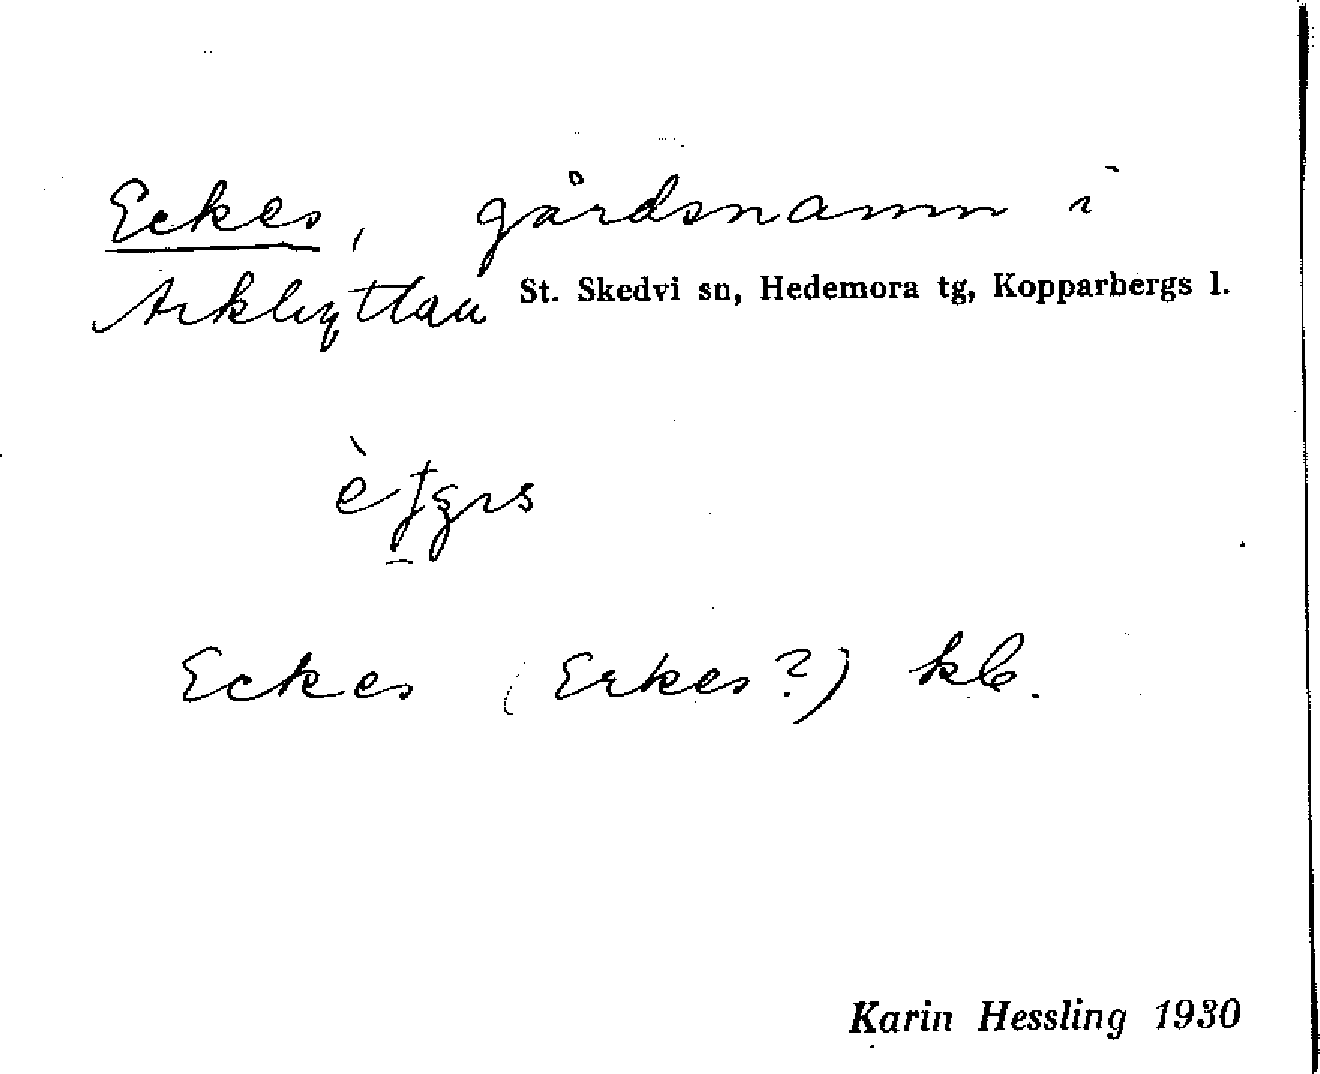 Eckes, gårdsnamn i
Arkhyttan St. Skedvi sn, Hedemora tg, Kopparbergs l.
Eckes (Erkes?) kb.
Karin Hessling 1930